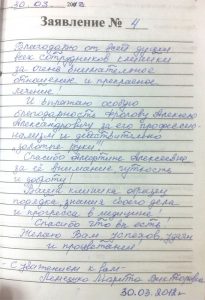 30.03. 2018г.
Заявление № 4
Благодарю от всей души
всех сотрудников клиники
за очень внимательное
отношение и прекрасное
лечение!
И выражаю особую
благодарность Фролову Алексею
Александровичу за его професcио
нализм и действительно
"золотые руки"!
Спасибо Алексеевне
за её внимание, чуткость
и заботу!
Ваша клиника образец
порядка, знания своего дела
и прогресса в медицине!
Спасибо что вы есть!
Желаю Вам успехов, удачи
и процветания!
С уважением к вам-
Викторовна
30.03.2018г.